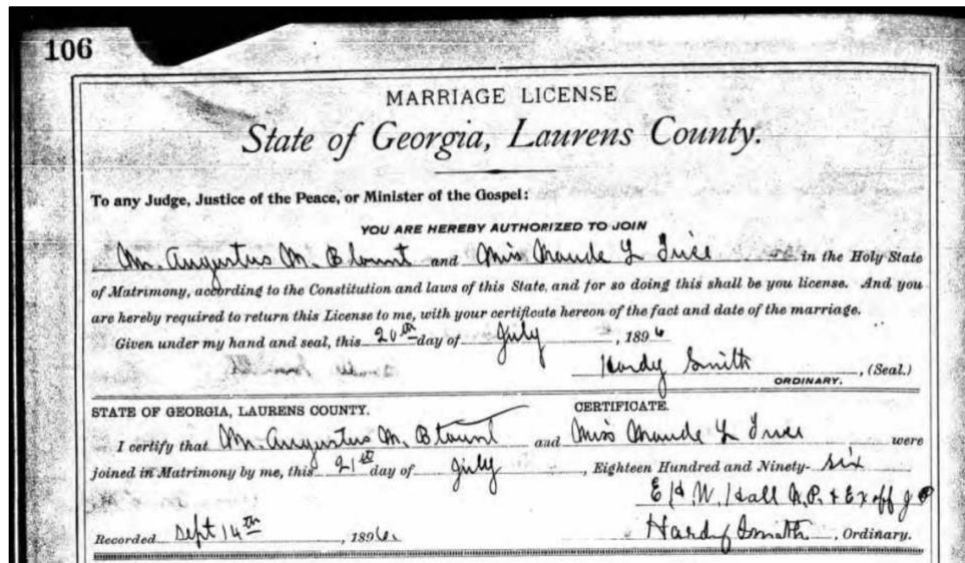 106
MARRIAGE LICENSE
State of Georgia, Laurens County.
To any Judge, Justice of the Peace, or Minister of the Gospel:
YOU ARE HEREBY AUTHORIZED TO JOIN
Mr. Augustus M. Blount and Miss Maude L in the Holy State
of Matrimony, according to the Constitution and laws of this State, and for so doing this shall be you license. And you
are hereby required to return this License to me, with your certificate hereon of the fact and date of the marriage.
Given under my hand and seal, this 20th day of July, 1896
Hardy Smith, (Seal.)
ORDINARY.
STATE OF GEORGIA, LAURENS COUNTY. CERTIFICATE.
I certify that Mr. Augustus M. Blount and Miss Maude L were
joined in Matrimony by me, this 21st day of July, Eighteen Hundred and Ninety-six
E.H.W. Hall N.P. & Ex off J P
Recorded Sept 14th, 1896. Hardy Smith, Ordinary.